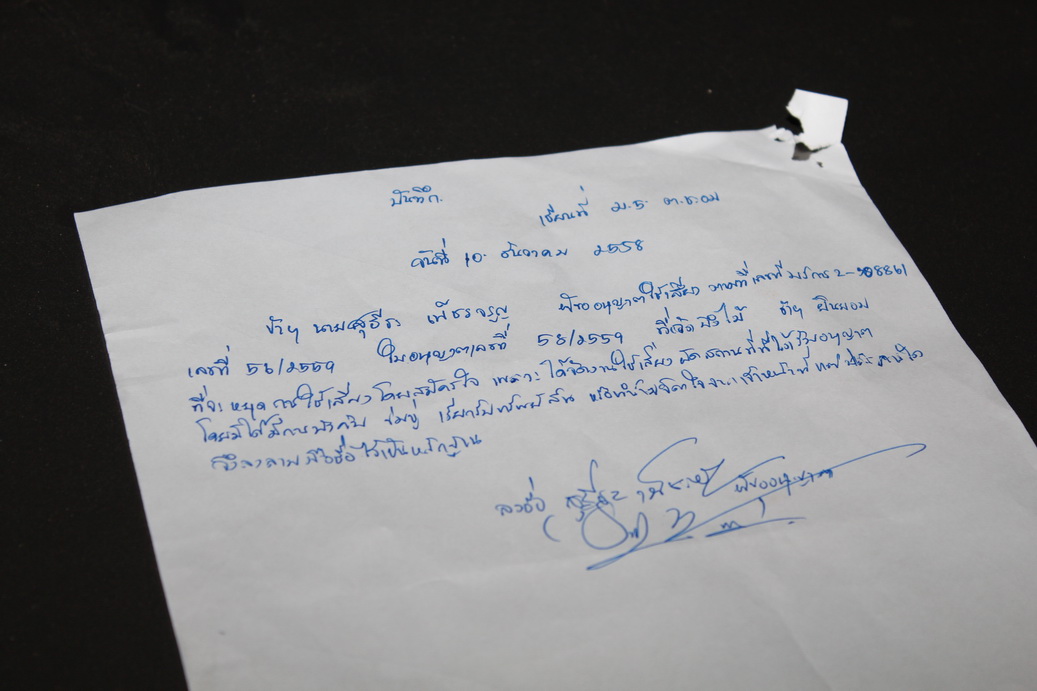 บันทึก.
เขียนที่ ม.5 ต.ชะอม
วันที่ 10 ธันวาคม 2558
ข้าฯ นายสุธีร์ เพียรเจริญ ผู้ขออนุญาตใช้เสียง ตามที่
เลขที่ 58/2559 ใบอนุญาตเลขที่ 58/2559 ข้าฯ ยินยอม
ที่จะหยุดการใช้เสียงโดยสมัครใจ เพราะได้จัดงานใช้เสียงผิดสถานที่ที่ได้รับอนุญาต
โดยมิได้มีการบังคับ ข่มขู่ เรียกรับทรัพย์สิน หรือทำให้เสียใจจากเจ้าหน้าที่แต่ประการใด
จึงลงลายมือชื่อไว้เป็นหลักฐาน
ลงชื่อ ผู้ขออนุญาต